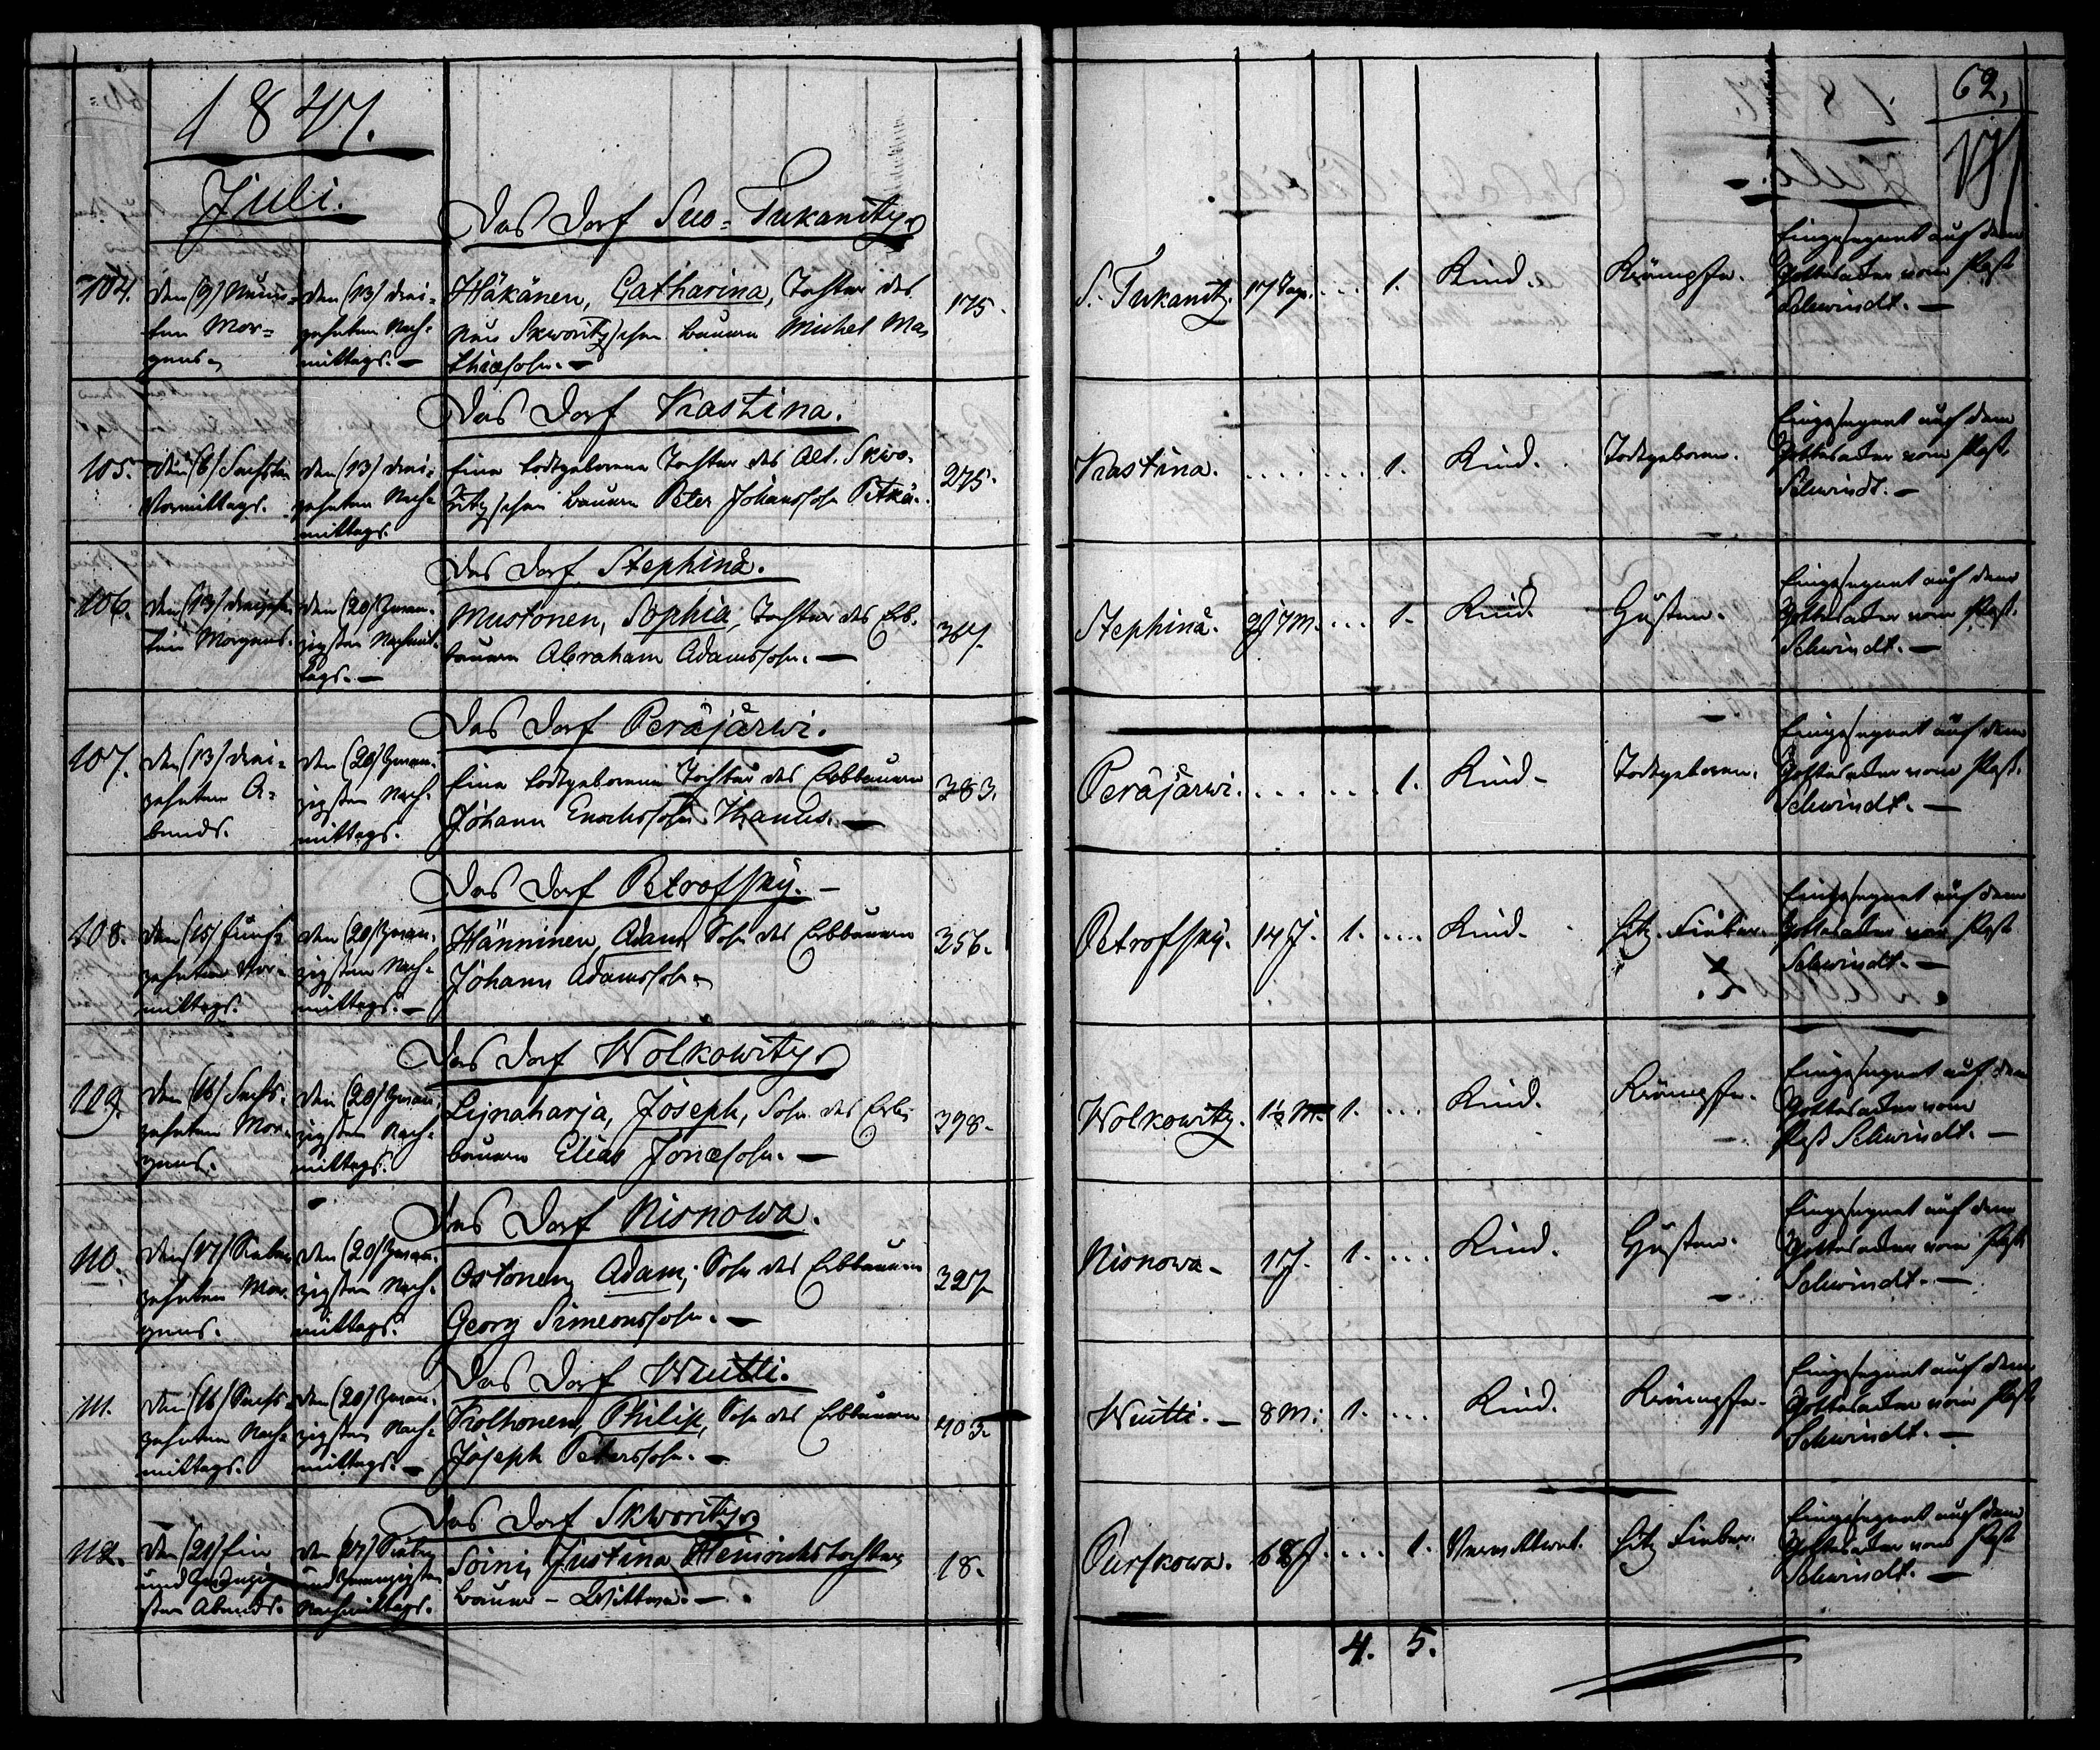 1847.
Juli.
Das Dorf Suo-Tukanitz.
104. den (9) Neun-
ten Mor-
gens.
den (13) drei-
zehnten Nach-
mittags. —
Häkänen, Catharina, Tochter des
Neu Skworitzschen Bauern Michel Ma-
thiassohn. —
175.
Das Dorf Kastina.
105. den (6) Sechsten
Vormittags.
den (13) drei-
zehnten Nach-
mittags.
Eine todtgeborene Tochter des Alt. Skwo-
ritzschen Bauern Peter Johanssohn
275.
Das Dorf Stephinä.
106. den (13) dreizehn-
ten Morgens.
den (20) Zwan-
zigsten Nachmit-
tags. —
Mustonen, Sophia, Tochter des Erb-
bauern Abraham Adamssohn. —
367.
Das Dorf Peräjärwi.
107. den (13) drei-
zehnten A-
bends.
den (20) Zwan-
zigsten Nach-
mittags.
Eine todtgeborene Tochter des Erbbauern
Johann Enochssohn Hanus. —
383.
Das Dorf Petrofsky. —
108. den (15) Funf-
zehnten Vor-
mittags.
den (20) Zwan-
zigsten Nach-
mittags. —
Hänninen, Adam, Sohn des Erbbauern
Johann Adamssohn.
356.
Das Dorf Wolkowitz.
109. den (16) Sechs-
zehnten Mor-
gens.
den (20) Zwan-
zigsten Nach-
mittags.
Leinaharja, Joseph, Sohn des Erb-
bauern Elias Jonassohn. —
398.
Das Dorf Nisnowa.
110. den (17) Sieben-
zehnten Mor-
gens.
den (20) Zwan-
zigsten Nach-
mittags.
Ostonen, Adam, Sohn des Erbbauern
Georg Simeonssohn. —
327.
Das Dorf Wuitti.
111. den (16) Sechs-
zehnten Nach-
mittags.
den (20) Zwan-
zigsten Nach-
mittags. —
Kolhonen, Philip, Sohn des Erbbauern
Joseph Peterssohn. —
403.
Das Dorf Skworitz.
112. den (21) Ein
und Zwanzig-
sten Abends.
den (27) Sieben
und Zwanzigsten
Nachmittags.
Soini, Justina Heinrichstochter,
Bauer-Wittwe. —
18.
62.
S. Tukanitz. 17 Tage. ... 1. Kind. Krämpfe.
Eingesegnet auf dem
Gottesacker vom Past
Schwindt. —
Kastina. ....... 1. Kind. Todtgeboren.
Eingesegnet auf dem
Gottesacker vom Past.
Schwindt. —
Stephinä. 2J 7M. ... 1. Kind Husten.
Eingesegnet auf dem
Gottesacker vom Past.
Schwindt. —
Peräjärwi. ....... 1. Kind. Todtgeboren.
Eingesegnet auf dem
Gottesacker vom Past.
Schwindt. —
Petrofsky. 14 J. 1. ... Kind. hitz. Fieber.
Eingesegnet auf dem
Gottesacker vom Past
Schwindt. —
Wolkowitz. 1½ M. 1. ... Kind. Krämpfe.
Eingesegnet auf dem
Gottesacker vom
Past Schwindt. —
Nisnowa. 1J. 1. ... Kind. Husten.
Eingesegnet auf dem
Gottesacker vom Past
Schwindt. —
Wuitti. — 8 M. 1. ... Kind. Krämpfe.
Eingesegnet auf dem
Gottesacker vom Past
Schwindt. —
Purskowa. 68 J. ... 1. Verwittwet. hitz Fieber.
Eingesegnet auf dem
Gottesacker vom Past
Schwindt. —
4. 5.